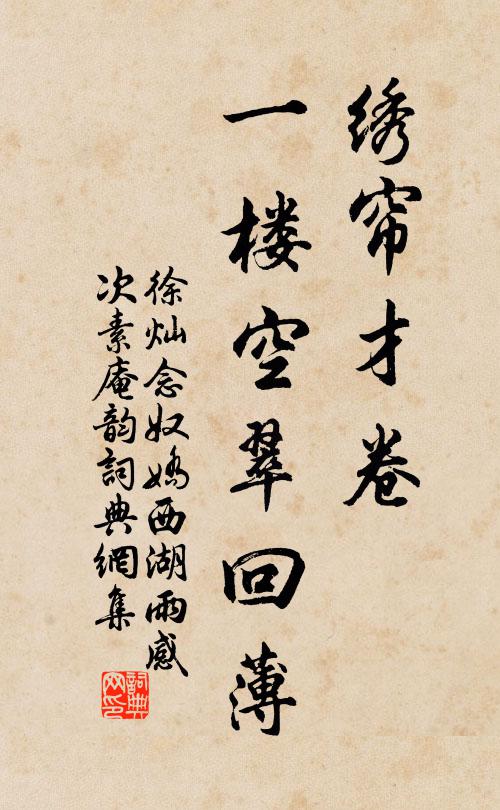 绣帘才卷
一楼空翠回薄
徐灿念奴娇西湖雨感
次素庵韵詞典網集
詞典
网印